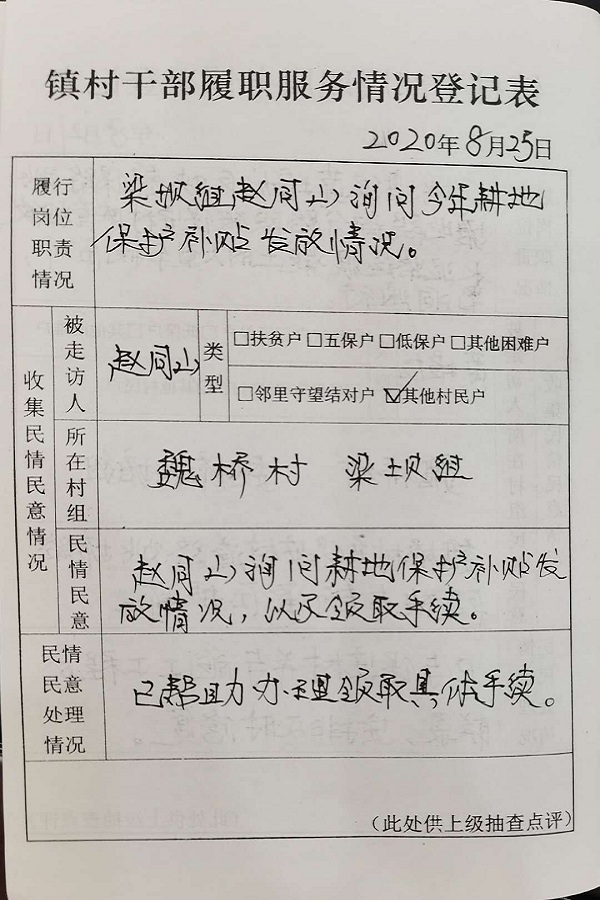 镇村干部履职服务情况登记表
2020年8月25日
履行
岗位
职责
情况
梁坝组赵同山询问今年耕地
保护补贴发放情况。
收集民情民意情况
被走访人
赵同山
类型
□扶贫户□五保户□低保户□其他困难户
□邻里守望结对户☑其他村民户
所在村组
魏桥村 梁坝组
民情民意
赵同山询问耕地保护补贴发
放情况，以及领取手续。
民情
民意
处理
情况
已帮助办理领取具体手续。
（此处供上级抽查点评）